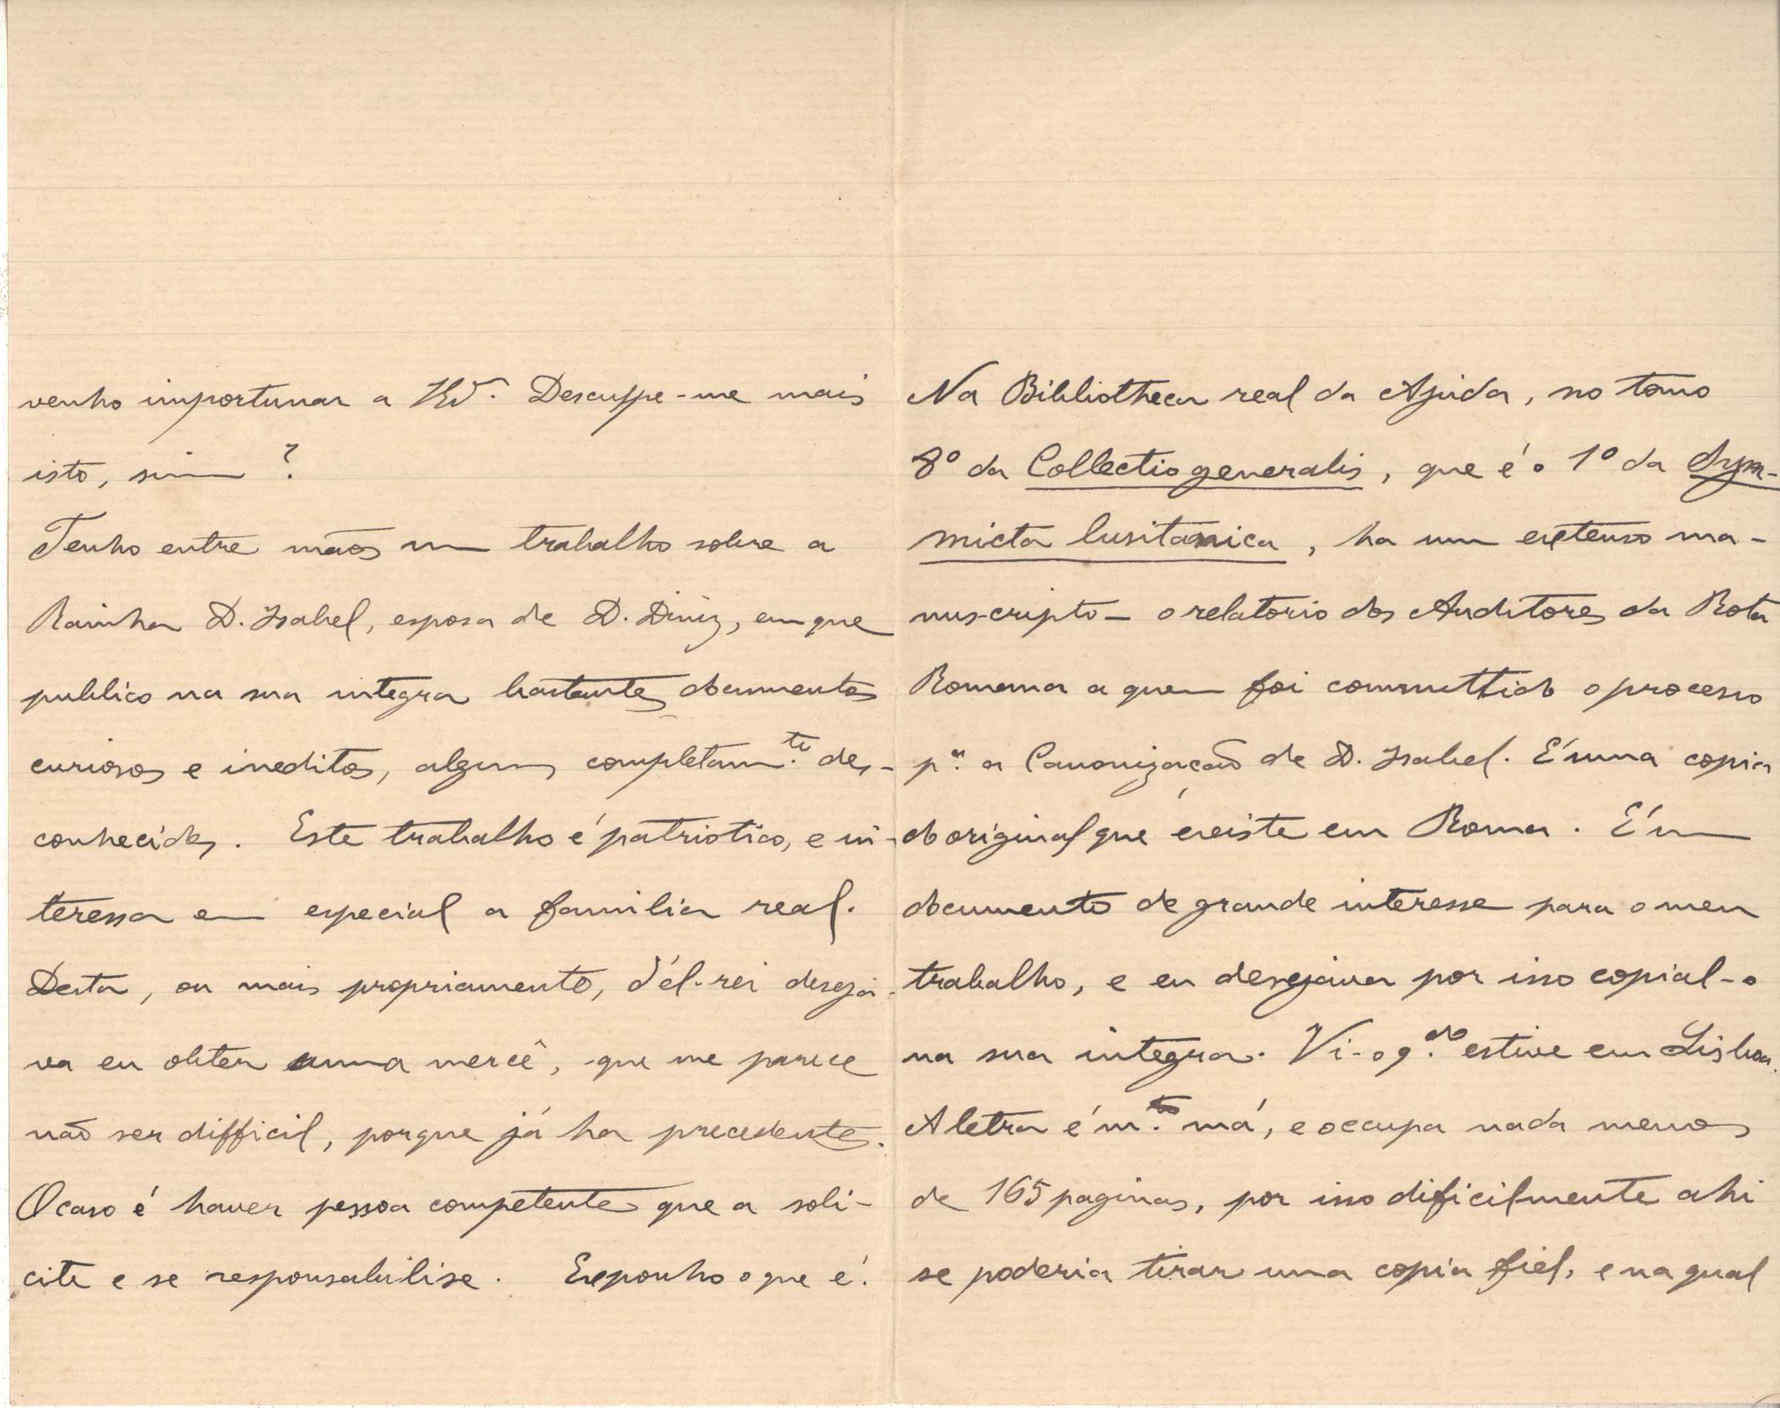 venho importunar a V. Desculpe-me mais
isto, sim ?
Tenho entre mãos um trabalho sobre a
Rainha D. Isabel, esposa de D. Diniz, em que
publico na sua integra bastantes documentos
curiosos e ineditos, alguns completam.te des-
conhecidos. Este trabalho é patriotico, e in-
teressa em especial a familia real.
Desta, ou mais propriamente, d'él-rei deseja-
va eu obter uma mercê, que me parece
não ser difficil, porque já ha precedente.
O caso é haver pessoa competente que a soli-
cite e se responsabilise. Exponho o que é.
Na Bibliotheca real da Ajuda, no tomo
8º da Collectio generalis, que é o 1º da Sym-
micta lusitanica, ha um extenso ma-
nuscripto — o relatorio dos Auditores da Rota
Romana a quem foi committido o processo
p.a a Canonização de D. Isabel. É uma copia
do original que existe em Roma. É um
documento de grande interesse para o meu
trabalho, e eu desejava por isso copial-o
na sua integra. Vi-o q.do estive em Lisboa.
A letra é m.to má, e occupa nada menos
de 165 paginas, por isso dificilmente ahi
se poderia tirar uma copia fiel, e na qual